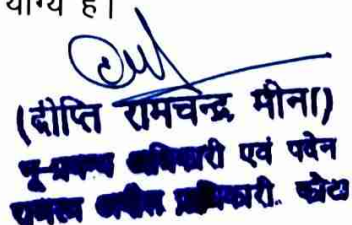 योग्य है।
(दीप्ति रामचन्द्र मीना)
भू-प्रबन्ध अधिकारी एवं पदेन
राजस्व अपील प्राधिकारी. कोटा